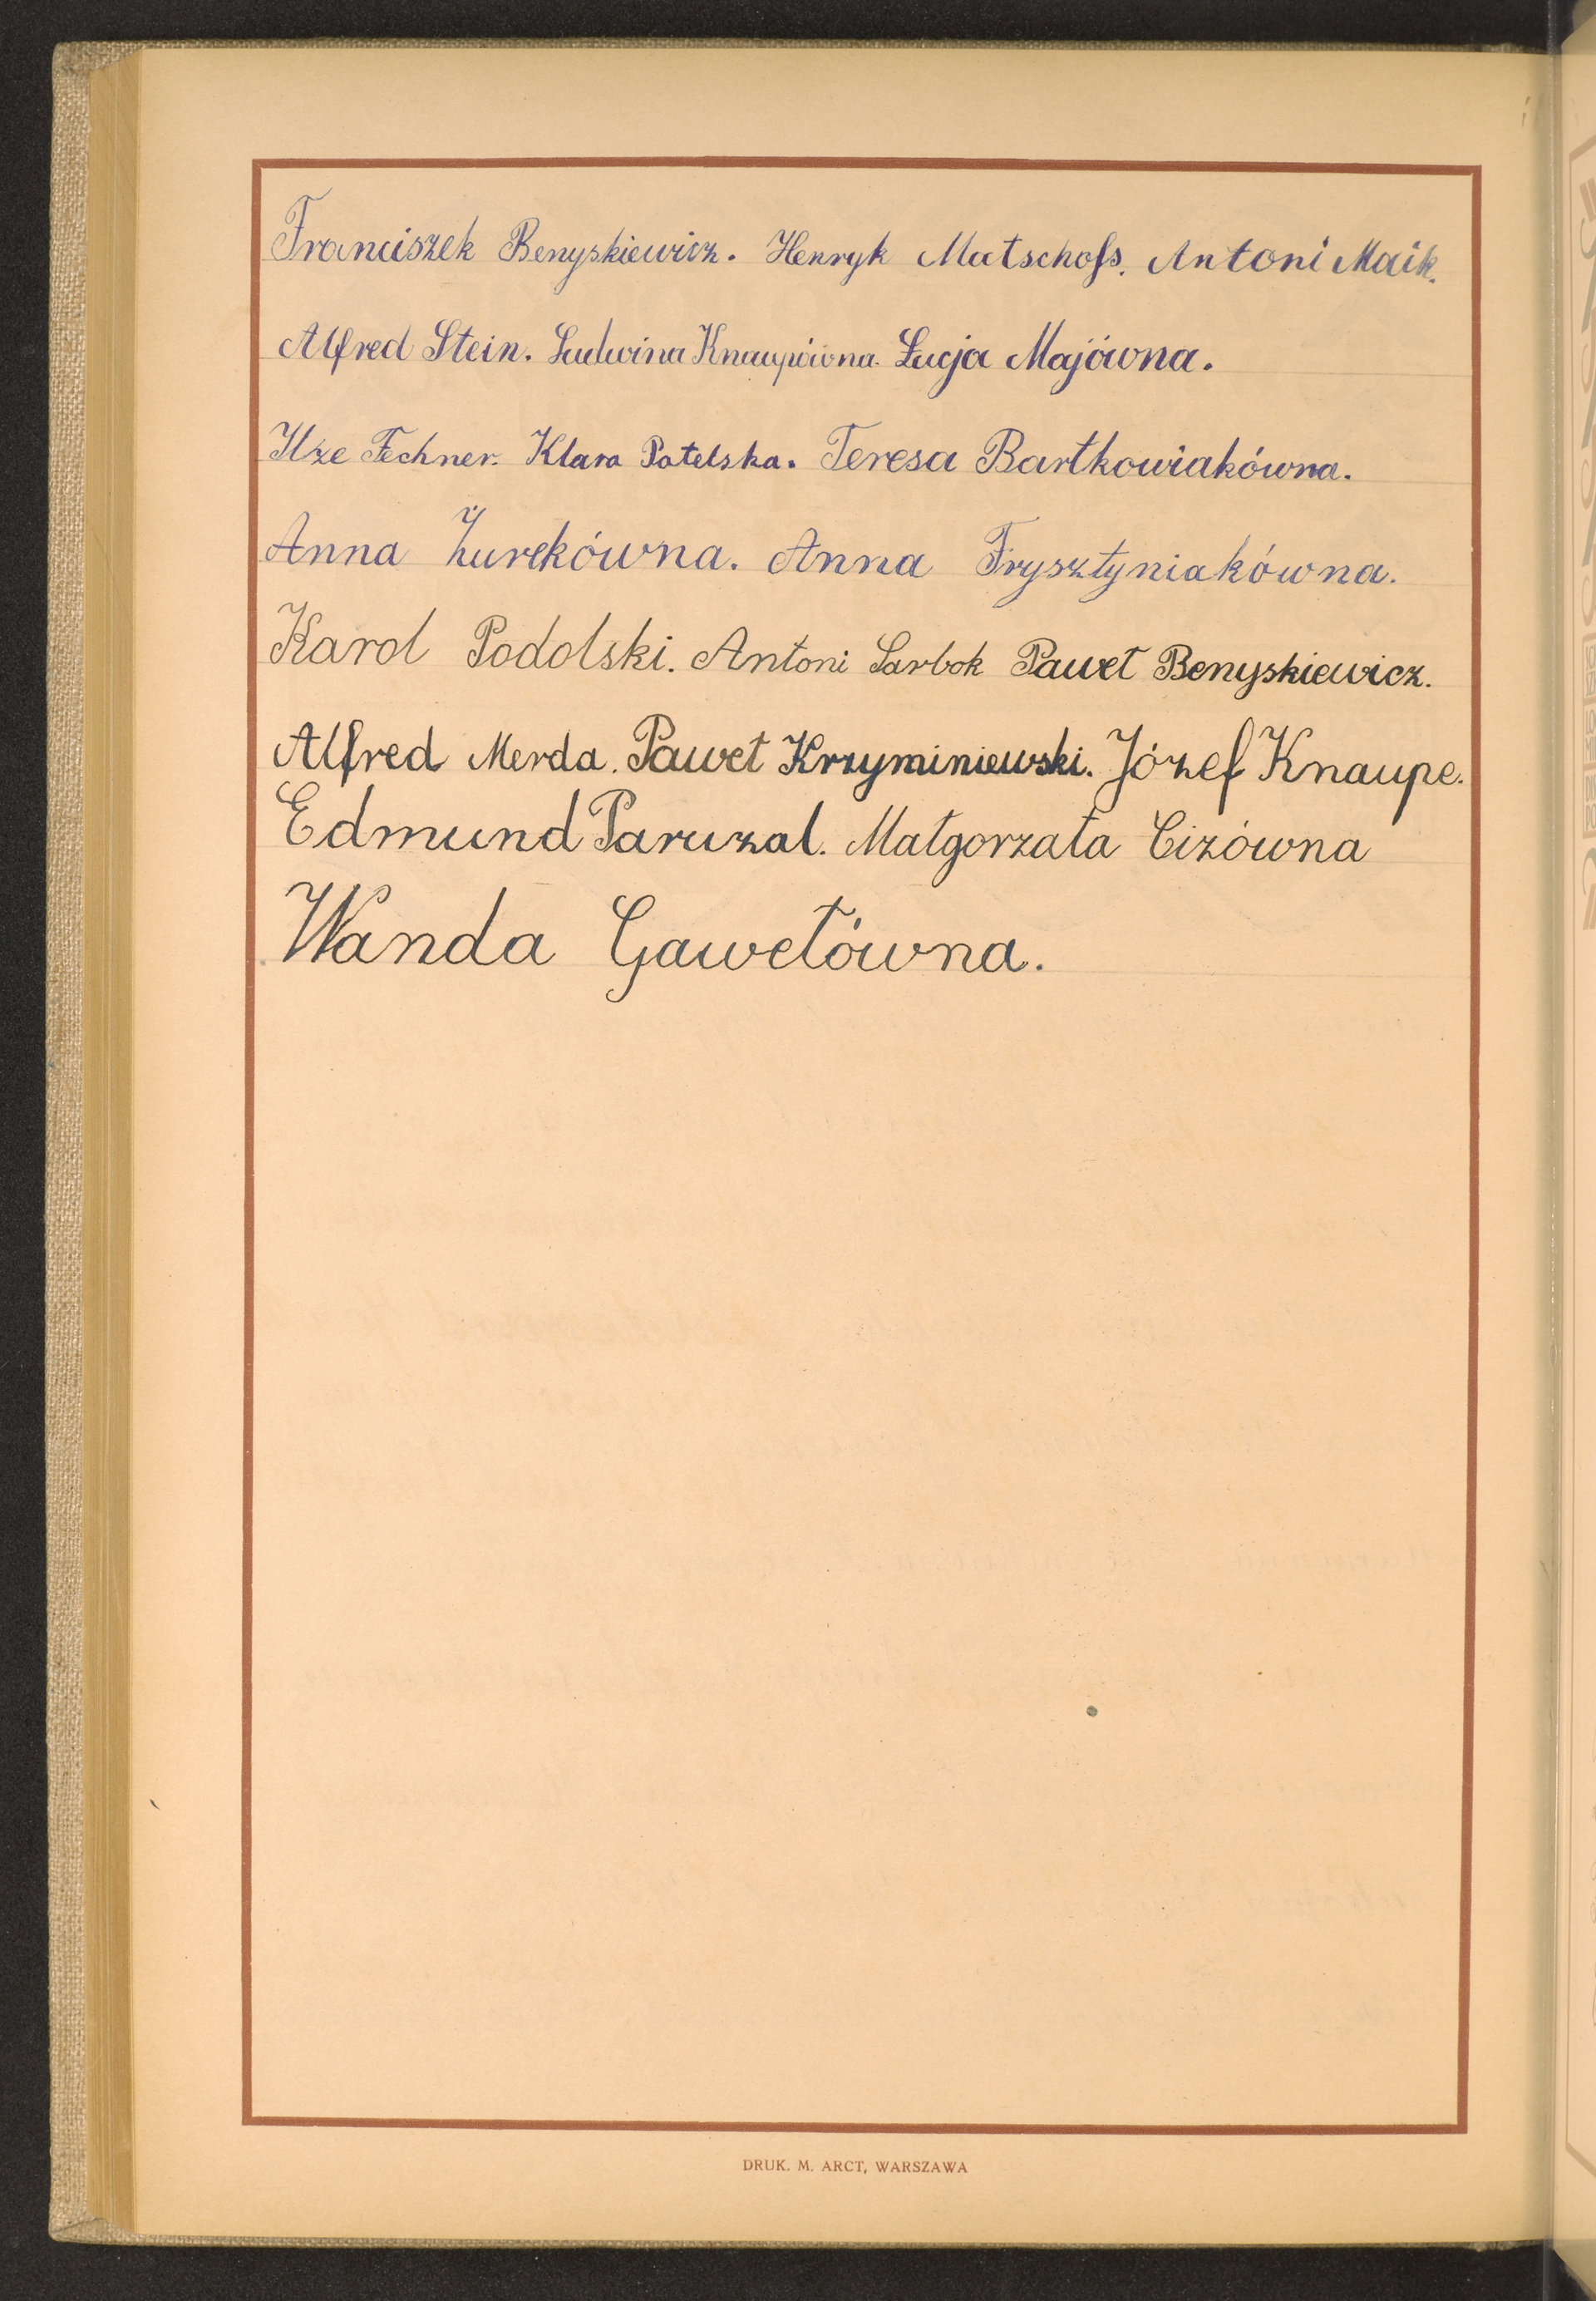 Franciszek Benyskiewicz. Henryk Matschofs. Antoni Maik.
Alfred Stein. Ludwina Knaupówna. Łucja Majówna.
Ilze Fechner. Klara Patelska. Teresa Bartkowiakówna.
Anna Żurekówna. Anna Frysztyniakówna.
Karol Podolski. Antoni Sarbok Paweł Benyskiewicz.
Alfred Merda. Paweł Krzyminiewski. Józef Knaupe.
Edmund Paruzal. Małgorzata Cizówna
Wanda Gawełówna.
DRUK. M. ARCT, WARSZAWA